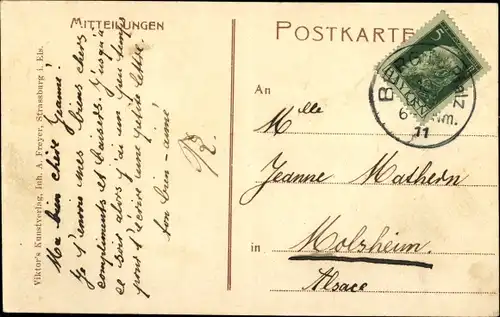 MITTEILUNGEN
POSTKARTE
Ma bien chère Jeanne!
Je t'envoie mes biens chers
compliments et baisers. Jusqu'à
ce soir alors j'ai un peu temps
pour t'écrire une petite lettre
ton bien-aimé
R.
Viktor's Kunstverlag, Inh. A. Freyer, Strassburg i. Els.
An
Mlle
Jeanne Mathern
in
Molsheim.
Alsace
5
BAYERN
Pfalz
6
Nm.
11